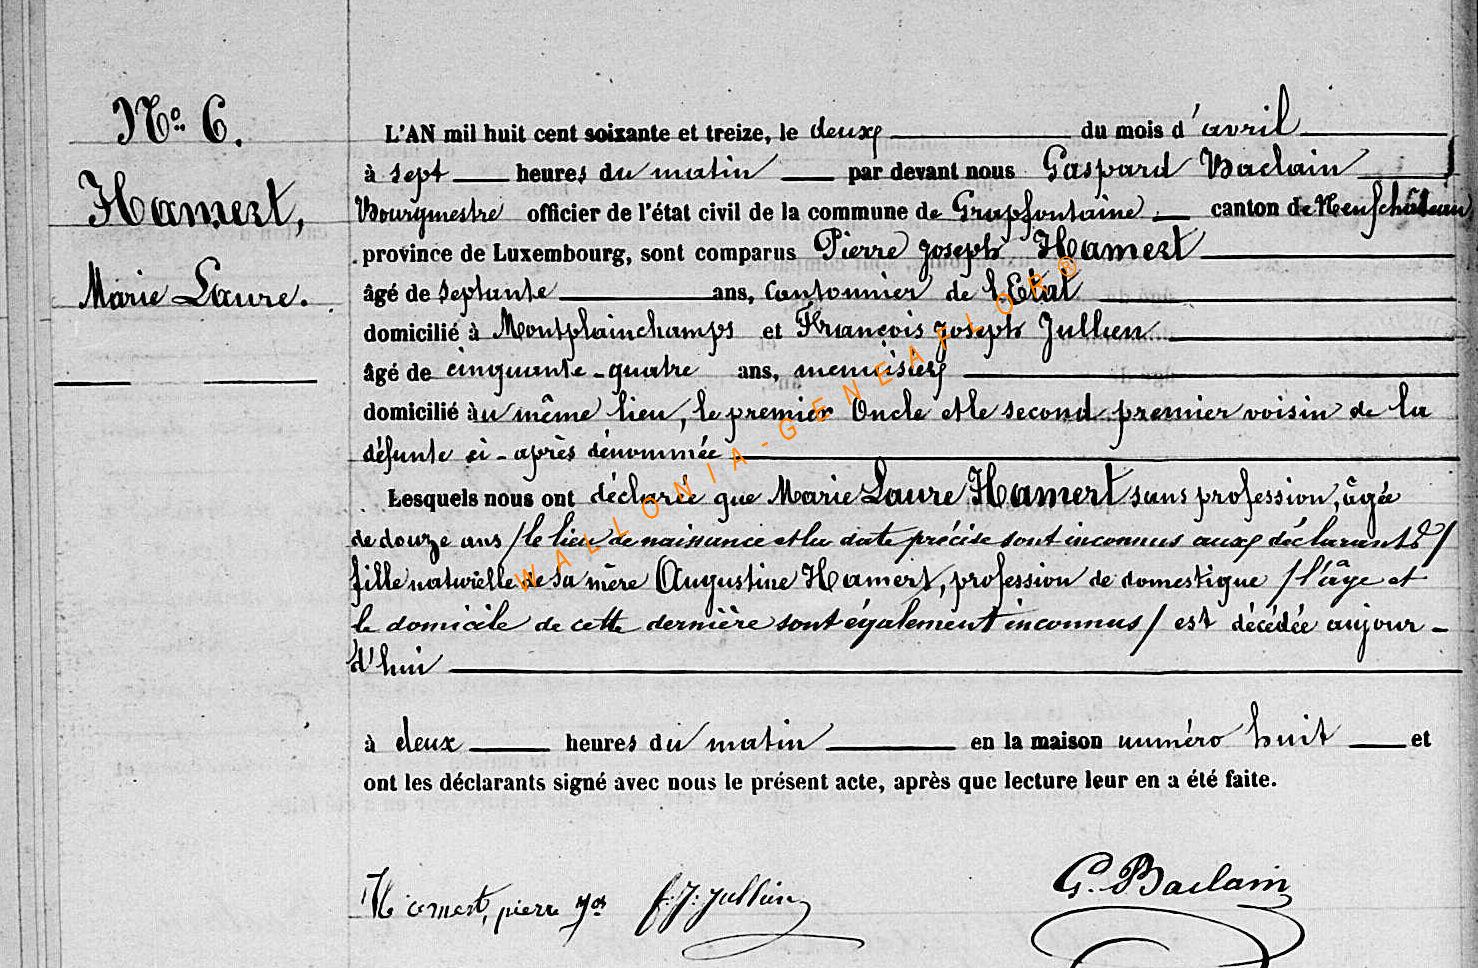 No. 6.
Hamert,
Marie Laure.
L'AN mil huit cent soixante et treize, le deux du mois d'avril
à sept heures du matin par devant nous Gaspard Baclain
Bourgmestre officier de l'état civil de la commune de Grapfontaine canton de Neufchâteau
province de Luxembourg, sont comparus Pierre Joseph Hamert
âgé de septante ans, Cantonnier de l'Etat
domicilié à Montplainchamps et François Joseph Jullien
âgé de cinquante-quatre ans, menuisier
domicilié au même lieu, le premier Oncle et le second premier voisin de la
défunte ci-après dénommée
Lesquels nous ont déclaré que Marie Laure Hamert sans profession, âgée
de douze ans /le lieu de naissance et la date précise sont inconnus aux déclarants/
fille naturelle de sa mère Augustine Hamert, profession de domestique /l'âge et
le domicile de cette dernière sont également inconnus/ est décédée aujour-
d'hui
à deux heures du matin en la maison numéro huit et
ont les déclarants signé avec nous le présent acte, après que lecture leur en a été faite.
Hamert, pierre jos F. J. Jullien G. Baclain
WALLONIA-GENEAFLOR®